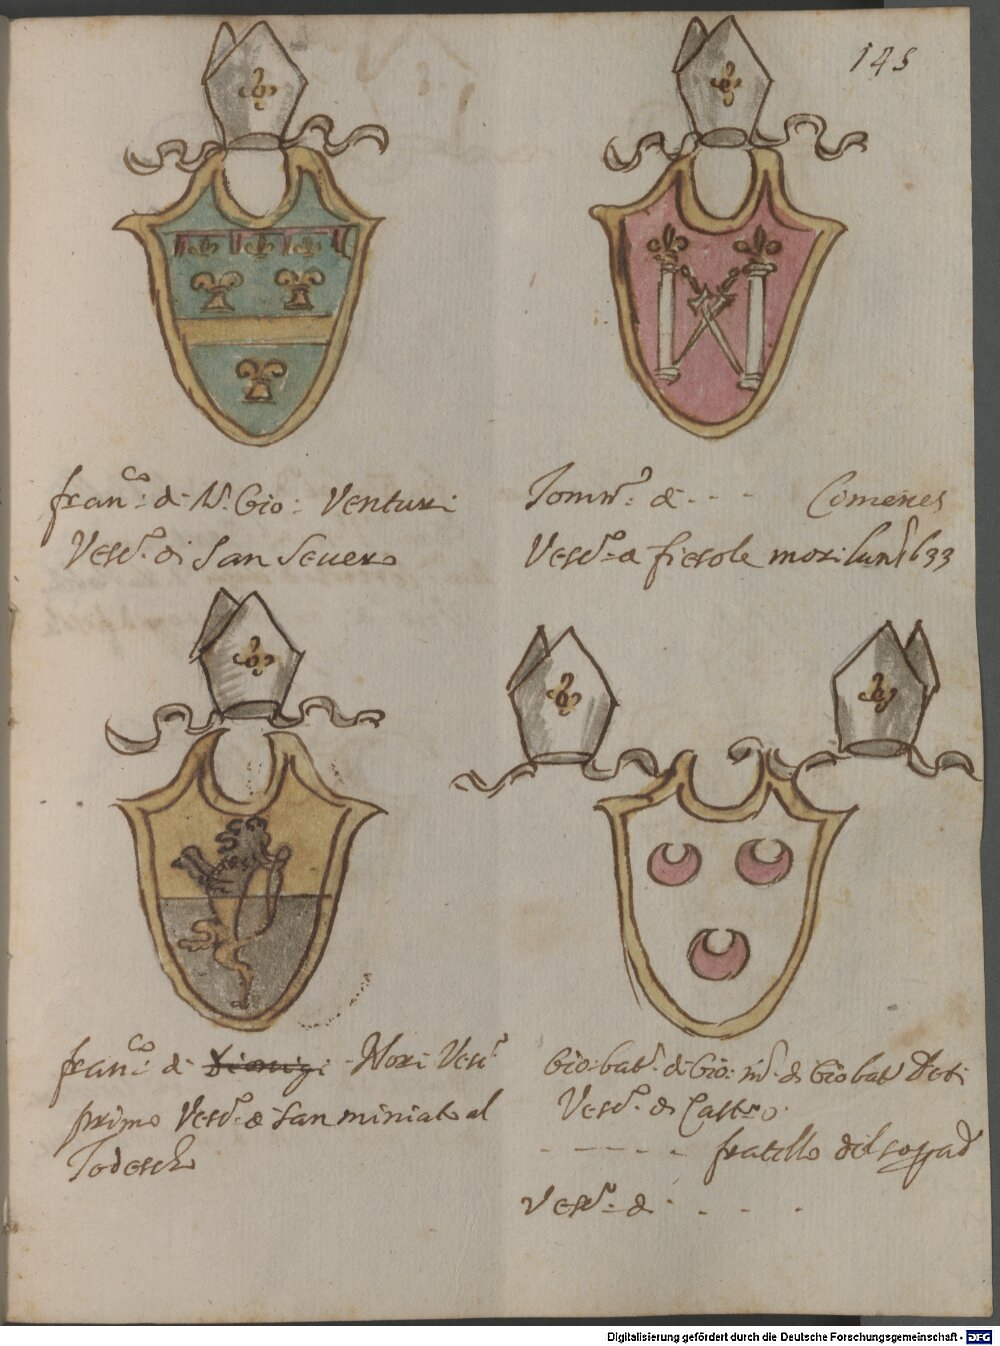 145
fran.co di M. Gio: Venturi
Vesc.o di San Seuero
Tomm.o di - - - Cimenes
Vesc.o di fiesole mori l'an. 1633
fran.co di Dionigi Nori Vesc.o
primo Vesc.o di San miniato al
Todesco
Gio: bat.a di Gio: m.a di Gio bat.a Deti
Vesc.o di Castro
- - - - - fratello del sopad.o
Vesc.o di - - - -
Digitalisierung gefördert durch die Deutsche Forschungsgemeinschaft - DFG